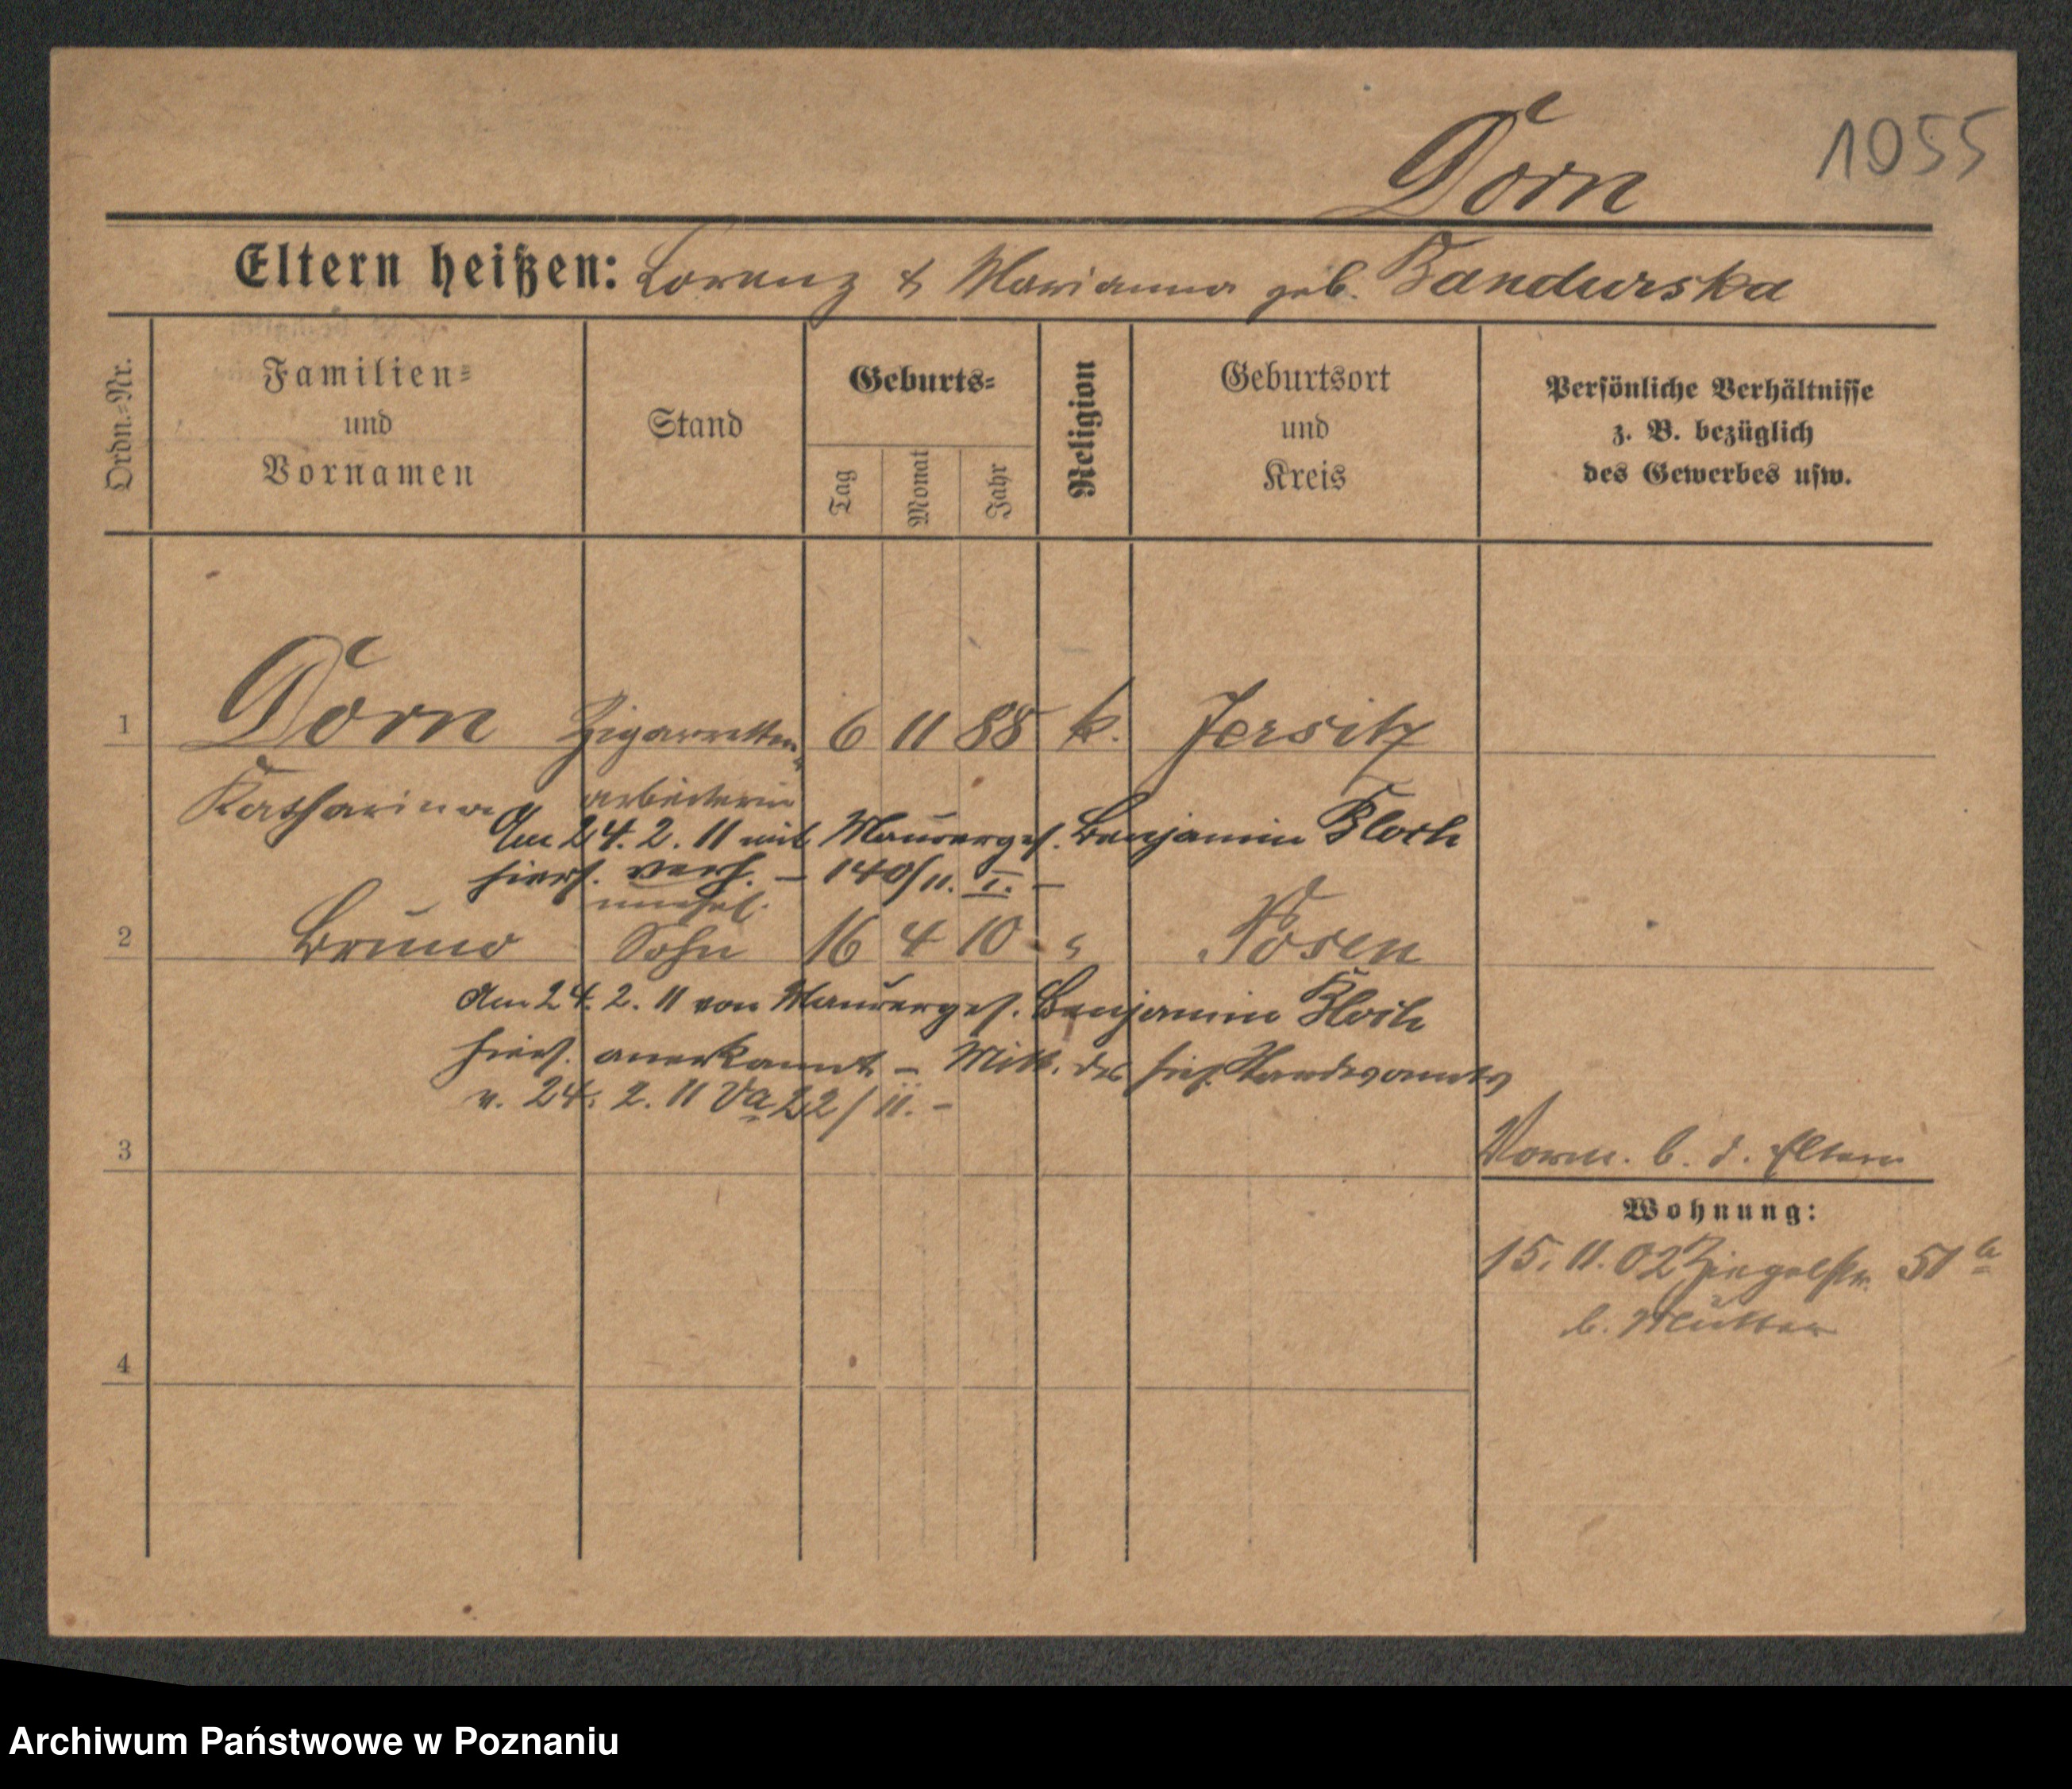 1055
Dorn
Eltern heißen: Lorenz & Marianna geb. Bandurska
Ordn.-Nr.
Familien-
und
Vornamen
Stand
Geburts-
Tag
Monat
Jahr
Religion
Geburtsort
und
Kreis
Persönliche Verhältnisse
z. B. bezüglich
des Gewerbes usw.
1 Dorn Zigarretten- 6 11 88 k. Jersitz
Katharina arbeiterin
Am 24. 2. 11 mit Maurerges. Benjamin Bloch
hiers. verh. – 140/11. I. –
unehel.
2 Bruno Sohn 16 4 10 " Posen
Am 24. 2. 11 von Maurerges. Benjamin Bloch
hiers. anerkannt – Mitt. des hies. Standesamts
v. 24. 2. 11 Va 22/11. –
3
Vorm. b. d. Eltern
Wohnung:
15. 11. 02 Ziegelstr. 51
b. Mutter
4
Archiwum Państwowe w Poznaniu